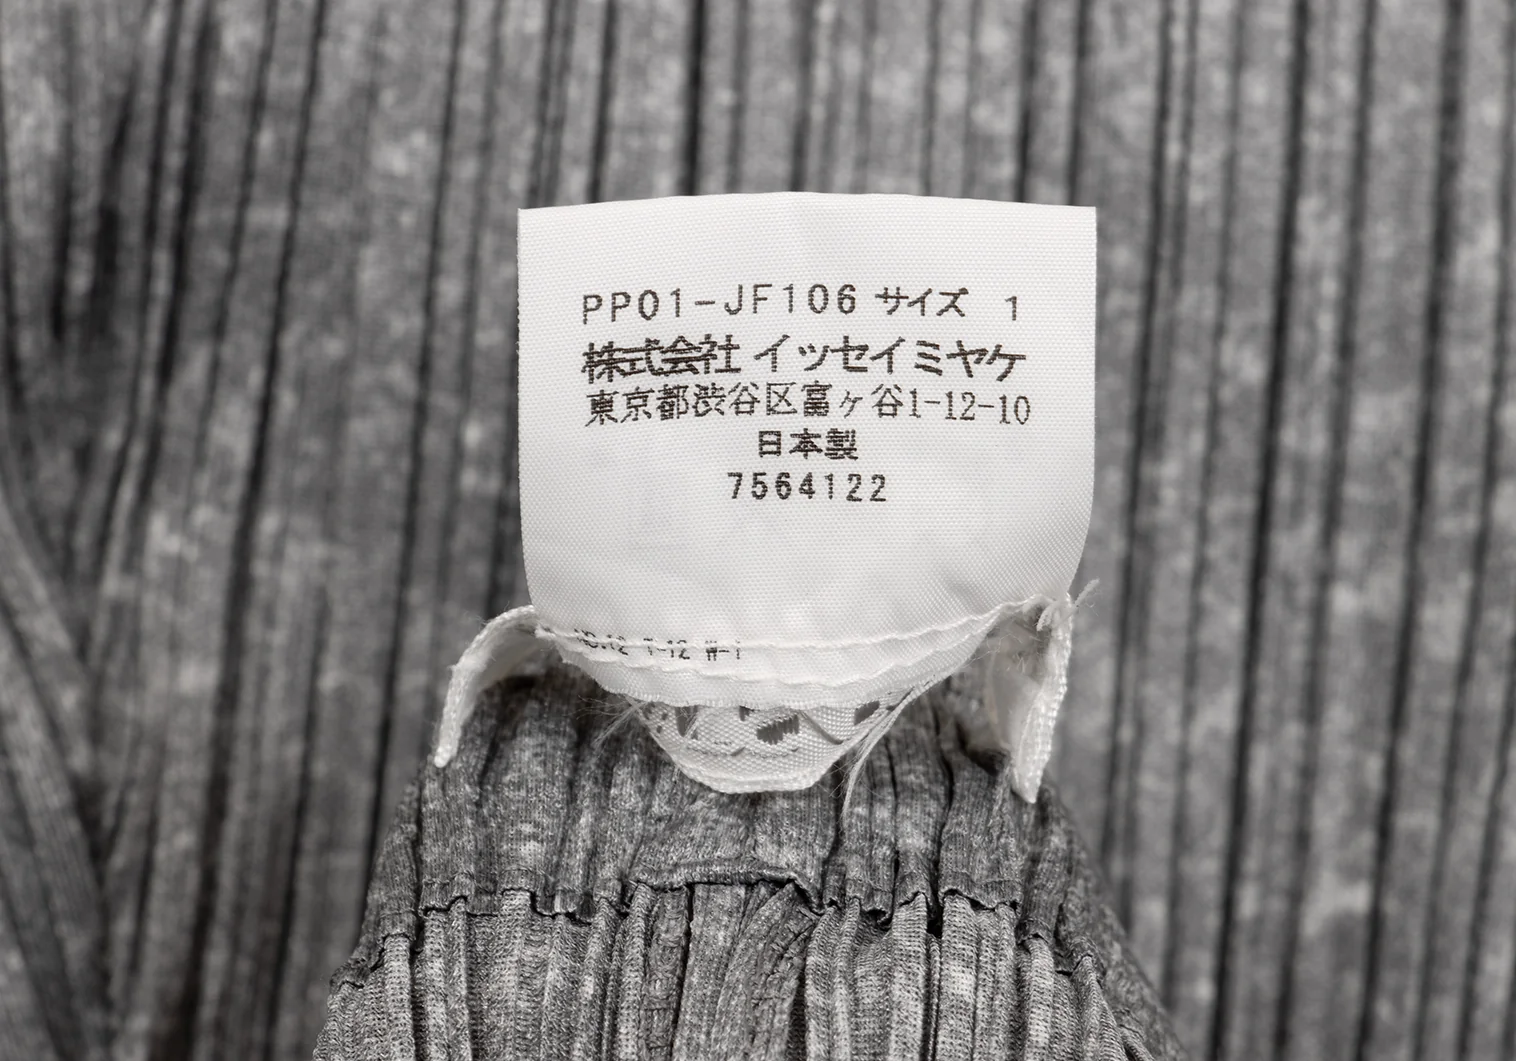 PP01-JF106 サイズ 1
株式会社 イッセイミヤケ
東京都渋谷区富ヶ谷1-12-10
日本製
7564122
T-12 W-1